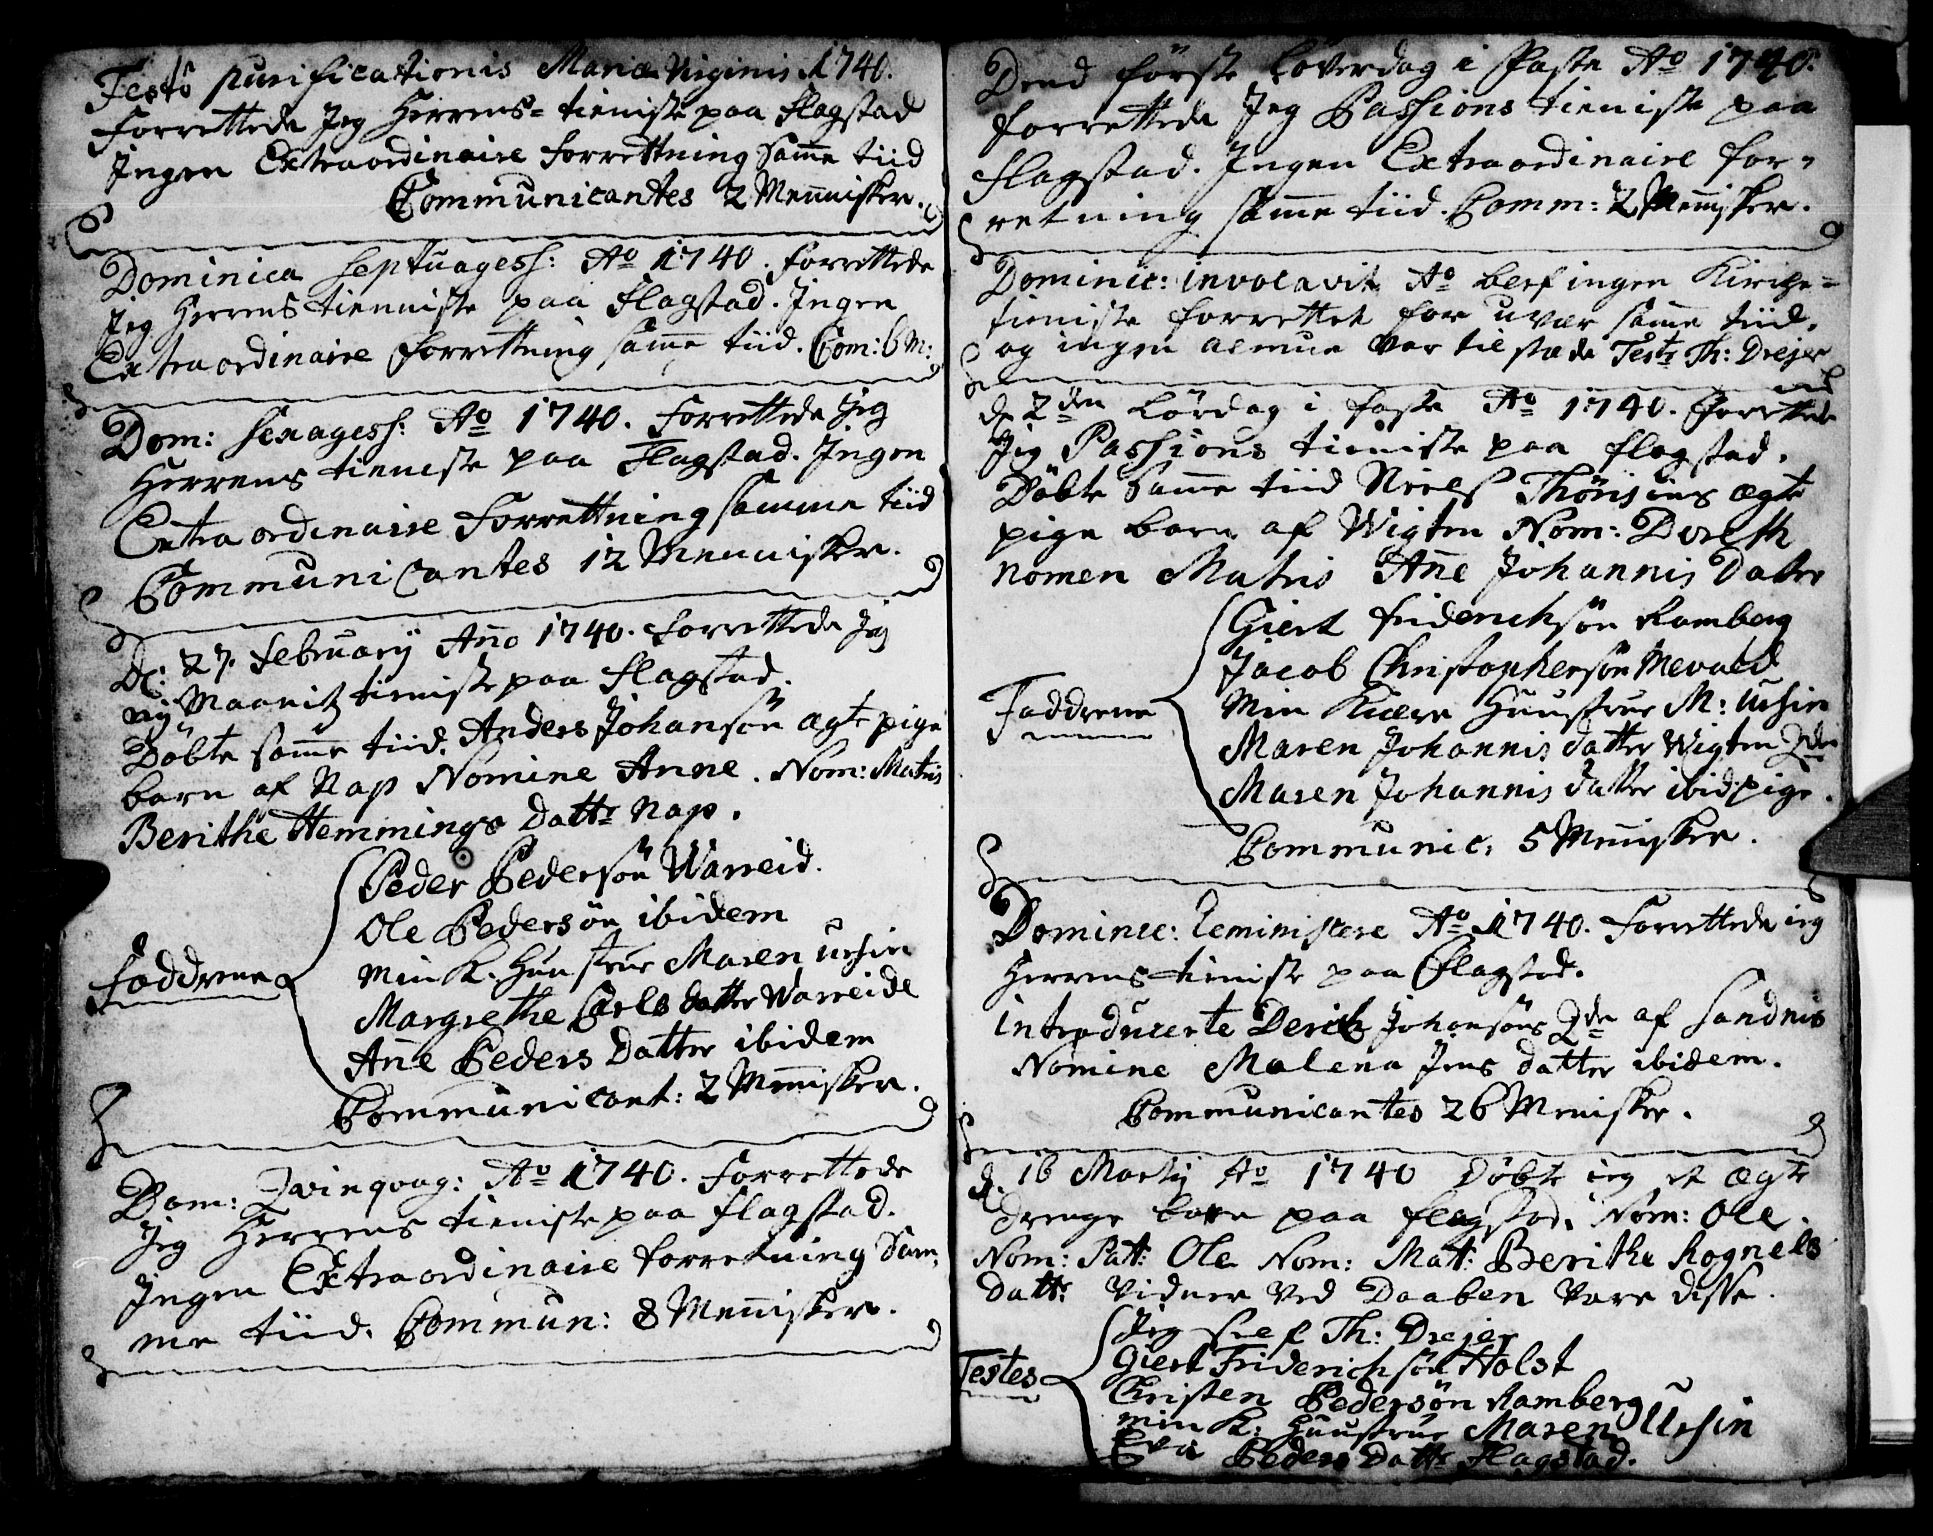 Festo purificationis Mariæ Virginis 1740.
Forrettede Jeg Herrens-tieniste paa Flagstad
Ingen Extraordinaire Forrettning samme tiid
Communicantes 2 Mennisker.
Dominica Septuagess: Ao 1740. forrettede
Jeg Herrens tienniste paa Flagstad. Ingen
Extraordinaire forrettning samme tiid. Com: 6 M:
Dom: Sexagess: Ao 1740. Forrettede Jeg
Herrens tienneste paa Flagstad. Ingen
Extraordinaire Forrettning samme tiid
Communicantes 12 Mennisker.
D: 27. February Anno 1740. Forrettede Jeg
Ny Maanitz tieniste paa Flagstad.
Döbte samme tiid. Anders Johansön ægte pige
barn af Nap Nomine Anne. Nom: Matris
Berithe Hemmings Dattr Nap.
Faddrene
Peder Pedersön Warreid.
Ole Pedersön ibidem
Min K. Huustrue Maren Ursin
Margrethe Carls datter Warreide
Anne Peders Datter ibidem
Communicant: 2 Mennisker.
Dom: Qvinqvag: Ao 1740. Forrettede
Jeg Herrens tieniste paa Flagstad.
Ingen Extraordinaire forretning Sam-
me tiid. Commun: 8 Mennisker.
Dend förste Löverdag i Faste Ao 1740.
forrettede Jeg Passions tieniste paa
Flagstad. Ingen Extraordinaire for-
retning samme tiid. Comm: 2 Mennisker.
Dominic: invocavit Ao blef ingen Kirche-
tieniste forrettet for uvær samme tiid.
og ingen almue var tilstæde Test: Th: Drejer
d. 2den Lördag i faste Ao 1740. Forrettede
Jeg Passions tieniste paa Flagstad.
Döbte samme tiid Niels Thörisens ægte
pige barn af Wigten Nom: Doreth
nomen Matris Anne Johannis Datter
Faddrene
Giert Friderichsön Ramberg
Jacob Christophersön Mevald
Min Kiære Huustrue M: Ursin
Maren Johannis datter Wigten
Maren Johannis datter ibid: pige.
Communic: 5 Mennisker.
Dominic: Reminiscere Ao 1740. Forrettede ieg
Herrens tieniste paa Flagstad.
introducerte Derich Johansöns Qde af Sandnis
Nomine Malena Jens datter ibidem.
Communicantes 26 Menisker.
d. 16 Martij Ao 1740 Döbte ieg et ægte
drenge barn paa Flagstad. Nom: Ole.
Nom: Patt: Ole Nom: Matt: Berithe Rognels
Datt: Vidner ved Daaben vare disse.
Testes
Jeg Self Th: Drejer
Giert Friderichsön Holst
Christen Pedersön Ramberg
min K: Huustrue Maren Ursin
Eva Peders Dattr Flagstad.